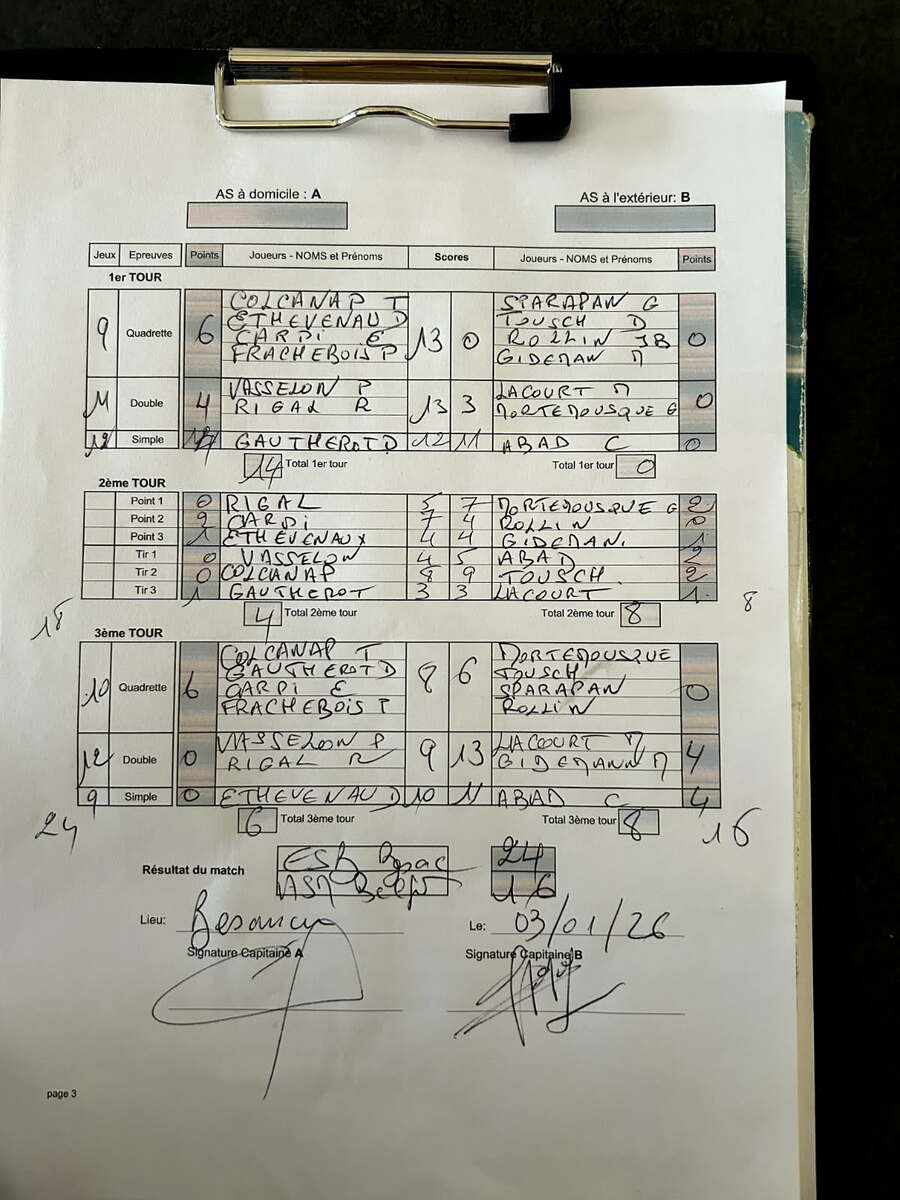 AS à domicile : A
AS à l'extérieur: B
Jeux Epreuves Points Joueurs - NOMS et Prénoms Scores Joueurs - NOMS et Prénoms Points
1er TOUR
9 Quadrette 6 COLCANAP T 13 0 SPARAPAN G 0
ETHEVENAU D TOUSCH D
CARPI E ROLLIN JB
FRACHEBOIS P GIDEMAN M
11 Double 4 VASSELON P 13 3 LACOURT M 0
RIGAL R MORTEMOUSQUE G
12 Simple GAUTHEROT D 12 11 ABAD C 0
14 Total 1er tour Total 1er tour 0
2ème TOUR
Point 1 0 RIGAL 5 7 MORTEMOUSQUE G 2
Point 2 2 CARPI 7 4 ROLLIN 0
Point 3 1 ETHEVENAUX 4 4 GIDEMAN. 1
Tir 1 0 VASSELON 4 5 ABAD 2
Tir 2 0 COLCANAP 8 9 TOUSCH. 2
Tir 3 1 GAUTHEROT 3 3 LACOURT 1.
18 4 Total 2ème tour Total 2ème tour 8 8
3ème TOUR
10 Quadrette 6 COLCANAP T 8 6 MORTEMOUSQUE 0
GAUTHEROT D TOUSCH
CARPI E SPARAPAN
FRACHEBOIS P ROLLIN
12 Double 0 VASSELON P 9 13 LACOURT M 4
RIGAL R GIDEMANN M
9 Simple 0 ETHEVENAU D 10 11 ABAD C 4
24 6 Total 3ème tour Total 3ème tour 8 16
Résultat du match
ESB Besac 24
ASM Belfort 16
Lieu: Besançon Le: 03/01/26
Signature Capitaine A Signature Capitaine B
page 3